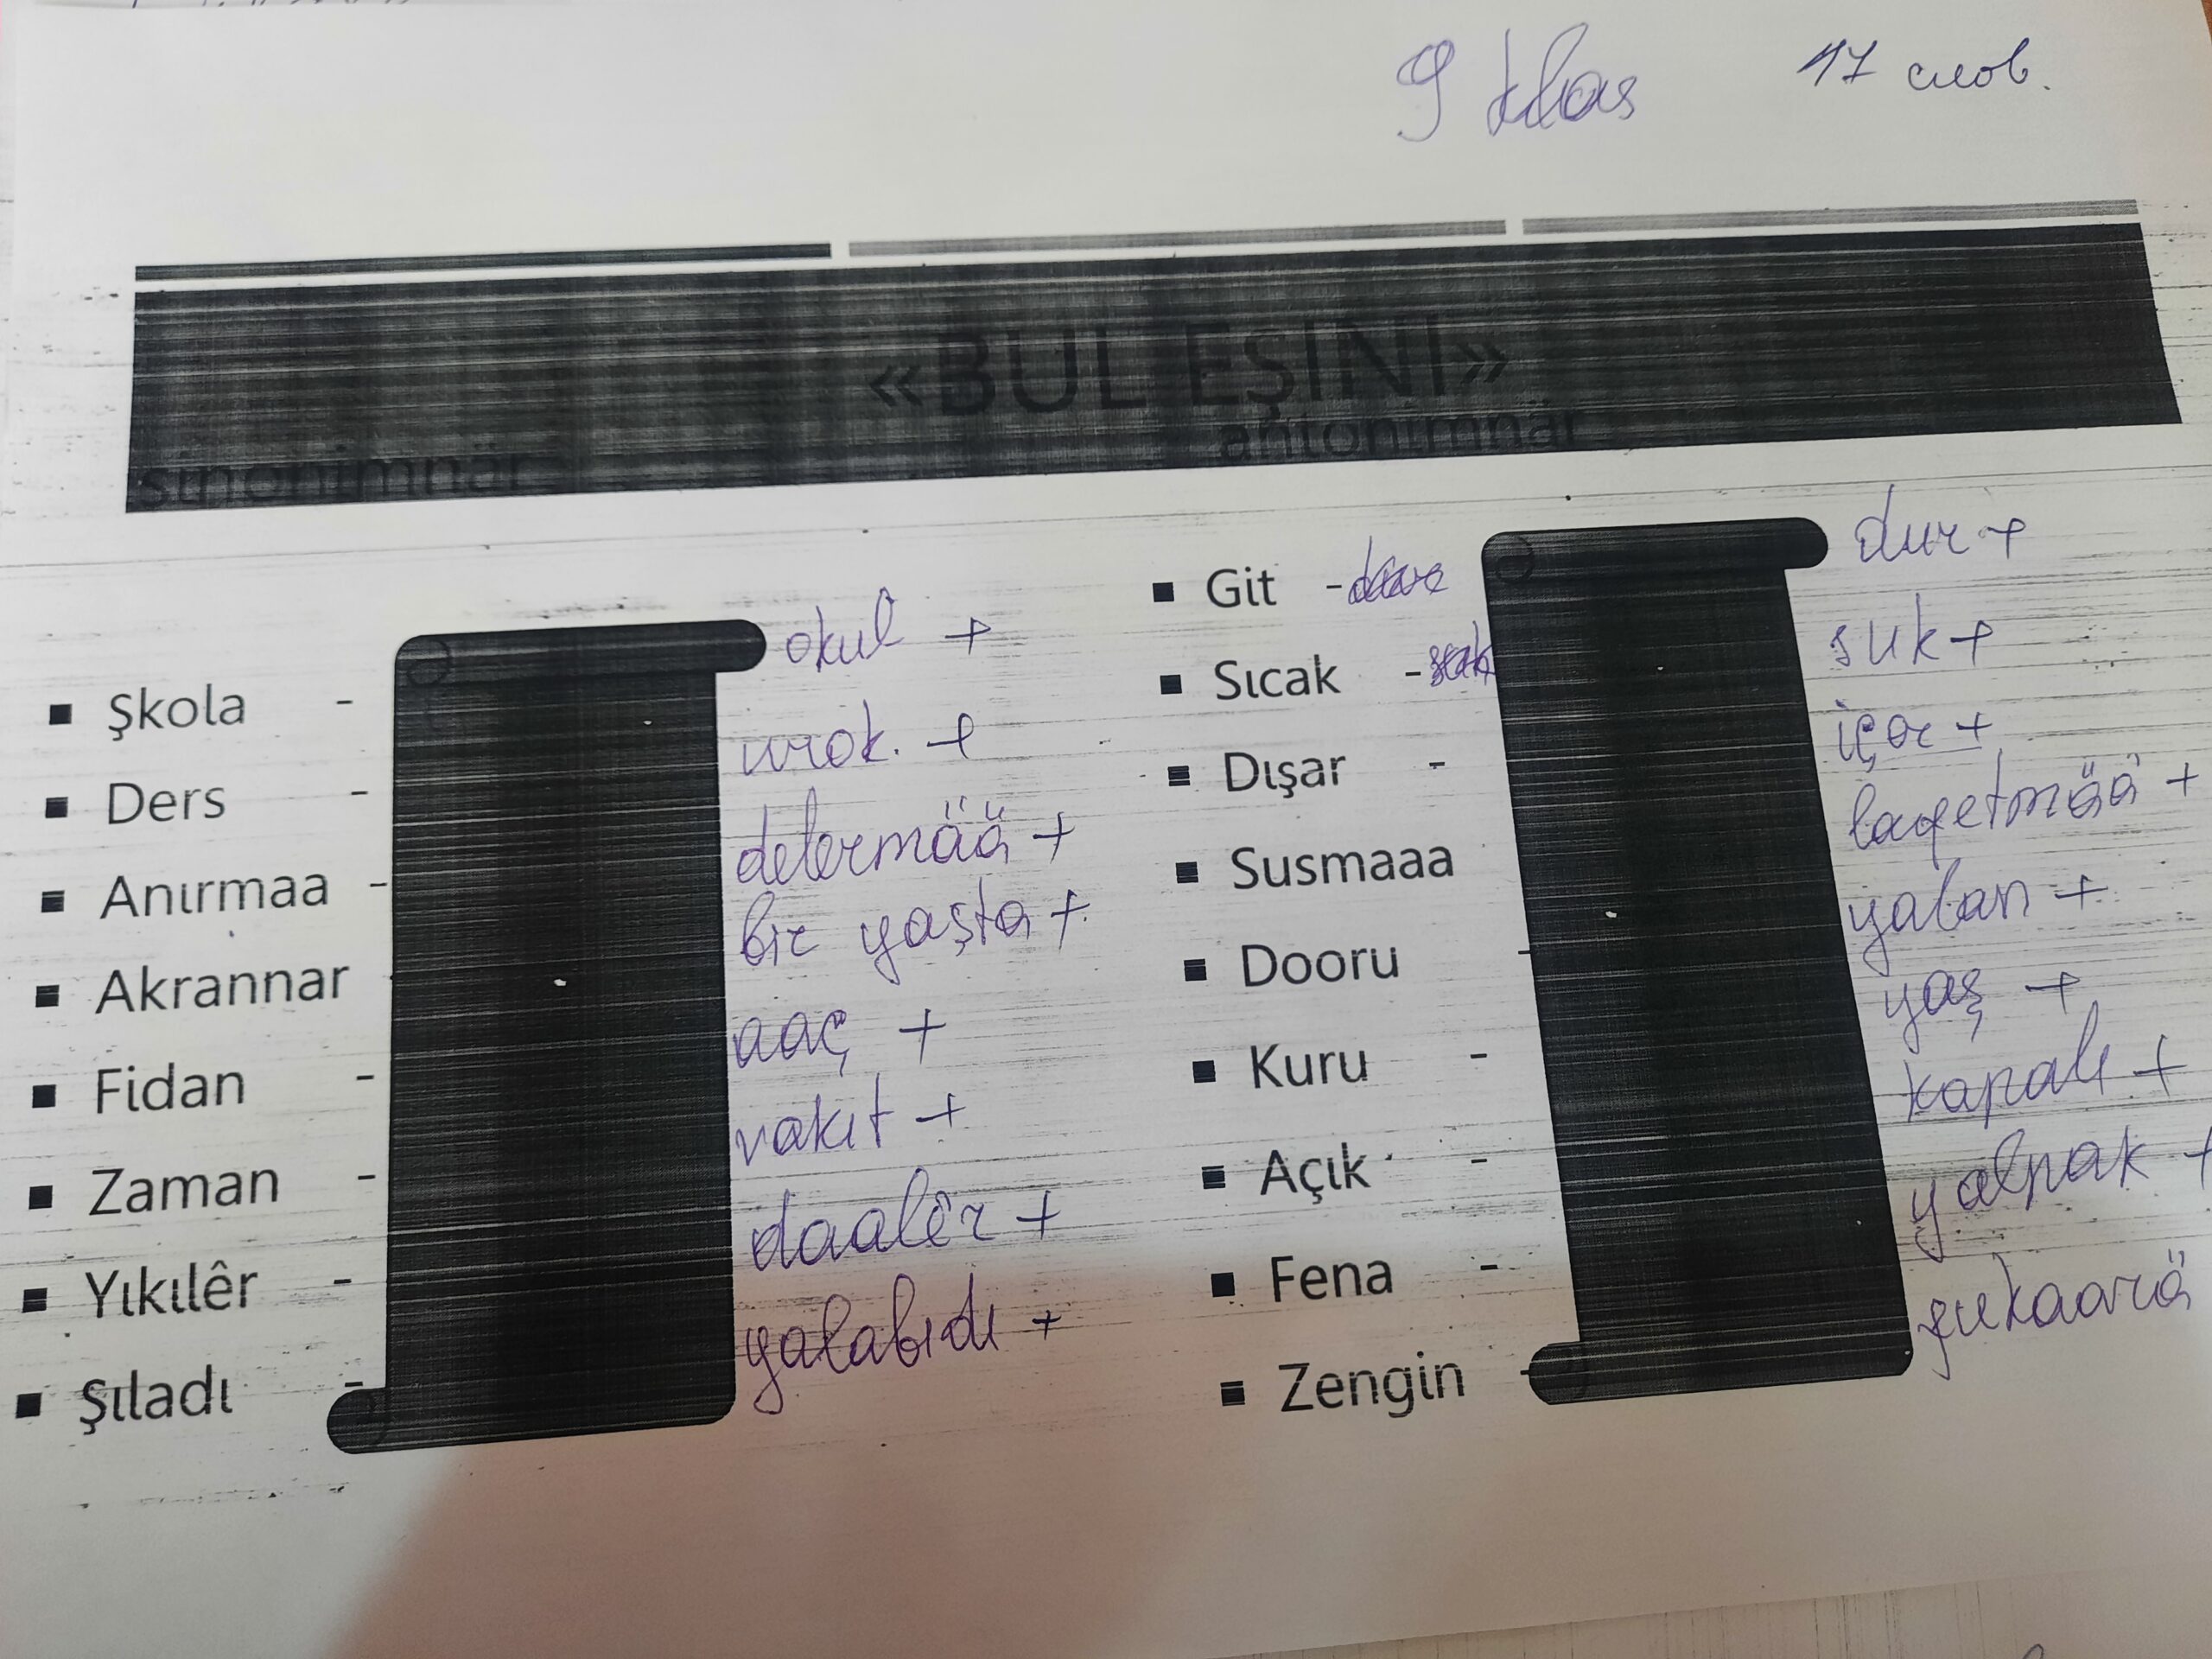 9 klas 17 слов.
«BUL EŞİNİ»
sinonimnär antonimnär
Şkola - okul +
Ders - urok. +
Anırmaa - delermää +
Akrannar bir yaşta +
Fidan - aaç +
Zaman - vakıt +
Yıkılêr - daalêr +
Şıladı - yalabıdı +
Git - dur +
Sıcak - suk +
Dışar - içer +
Susmaaa lafetmää +
Dooru - yalan +
Kuru - yaş +
Açık - kapalı +
Fena - yalpak +
Zengin - fukaara